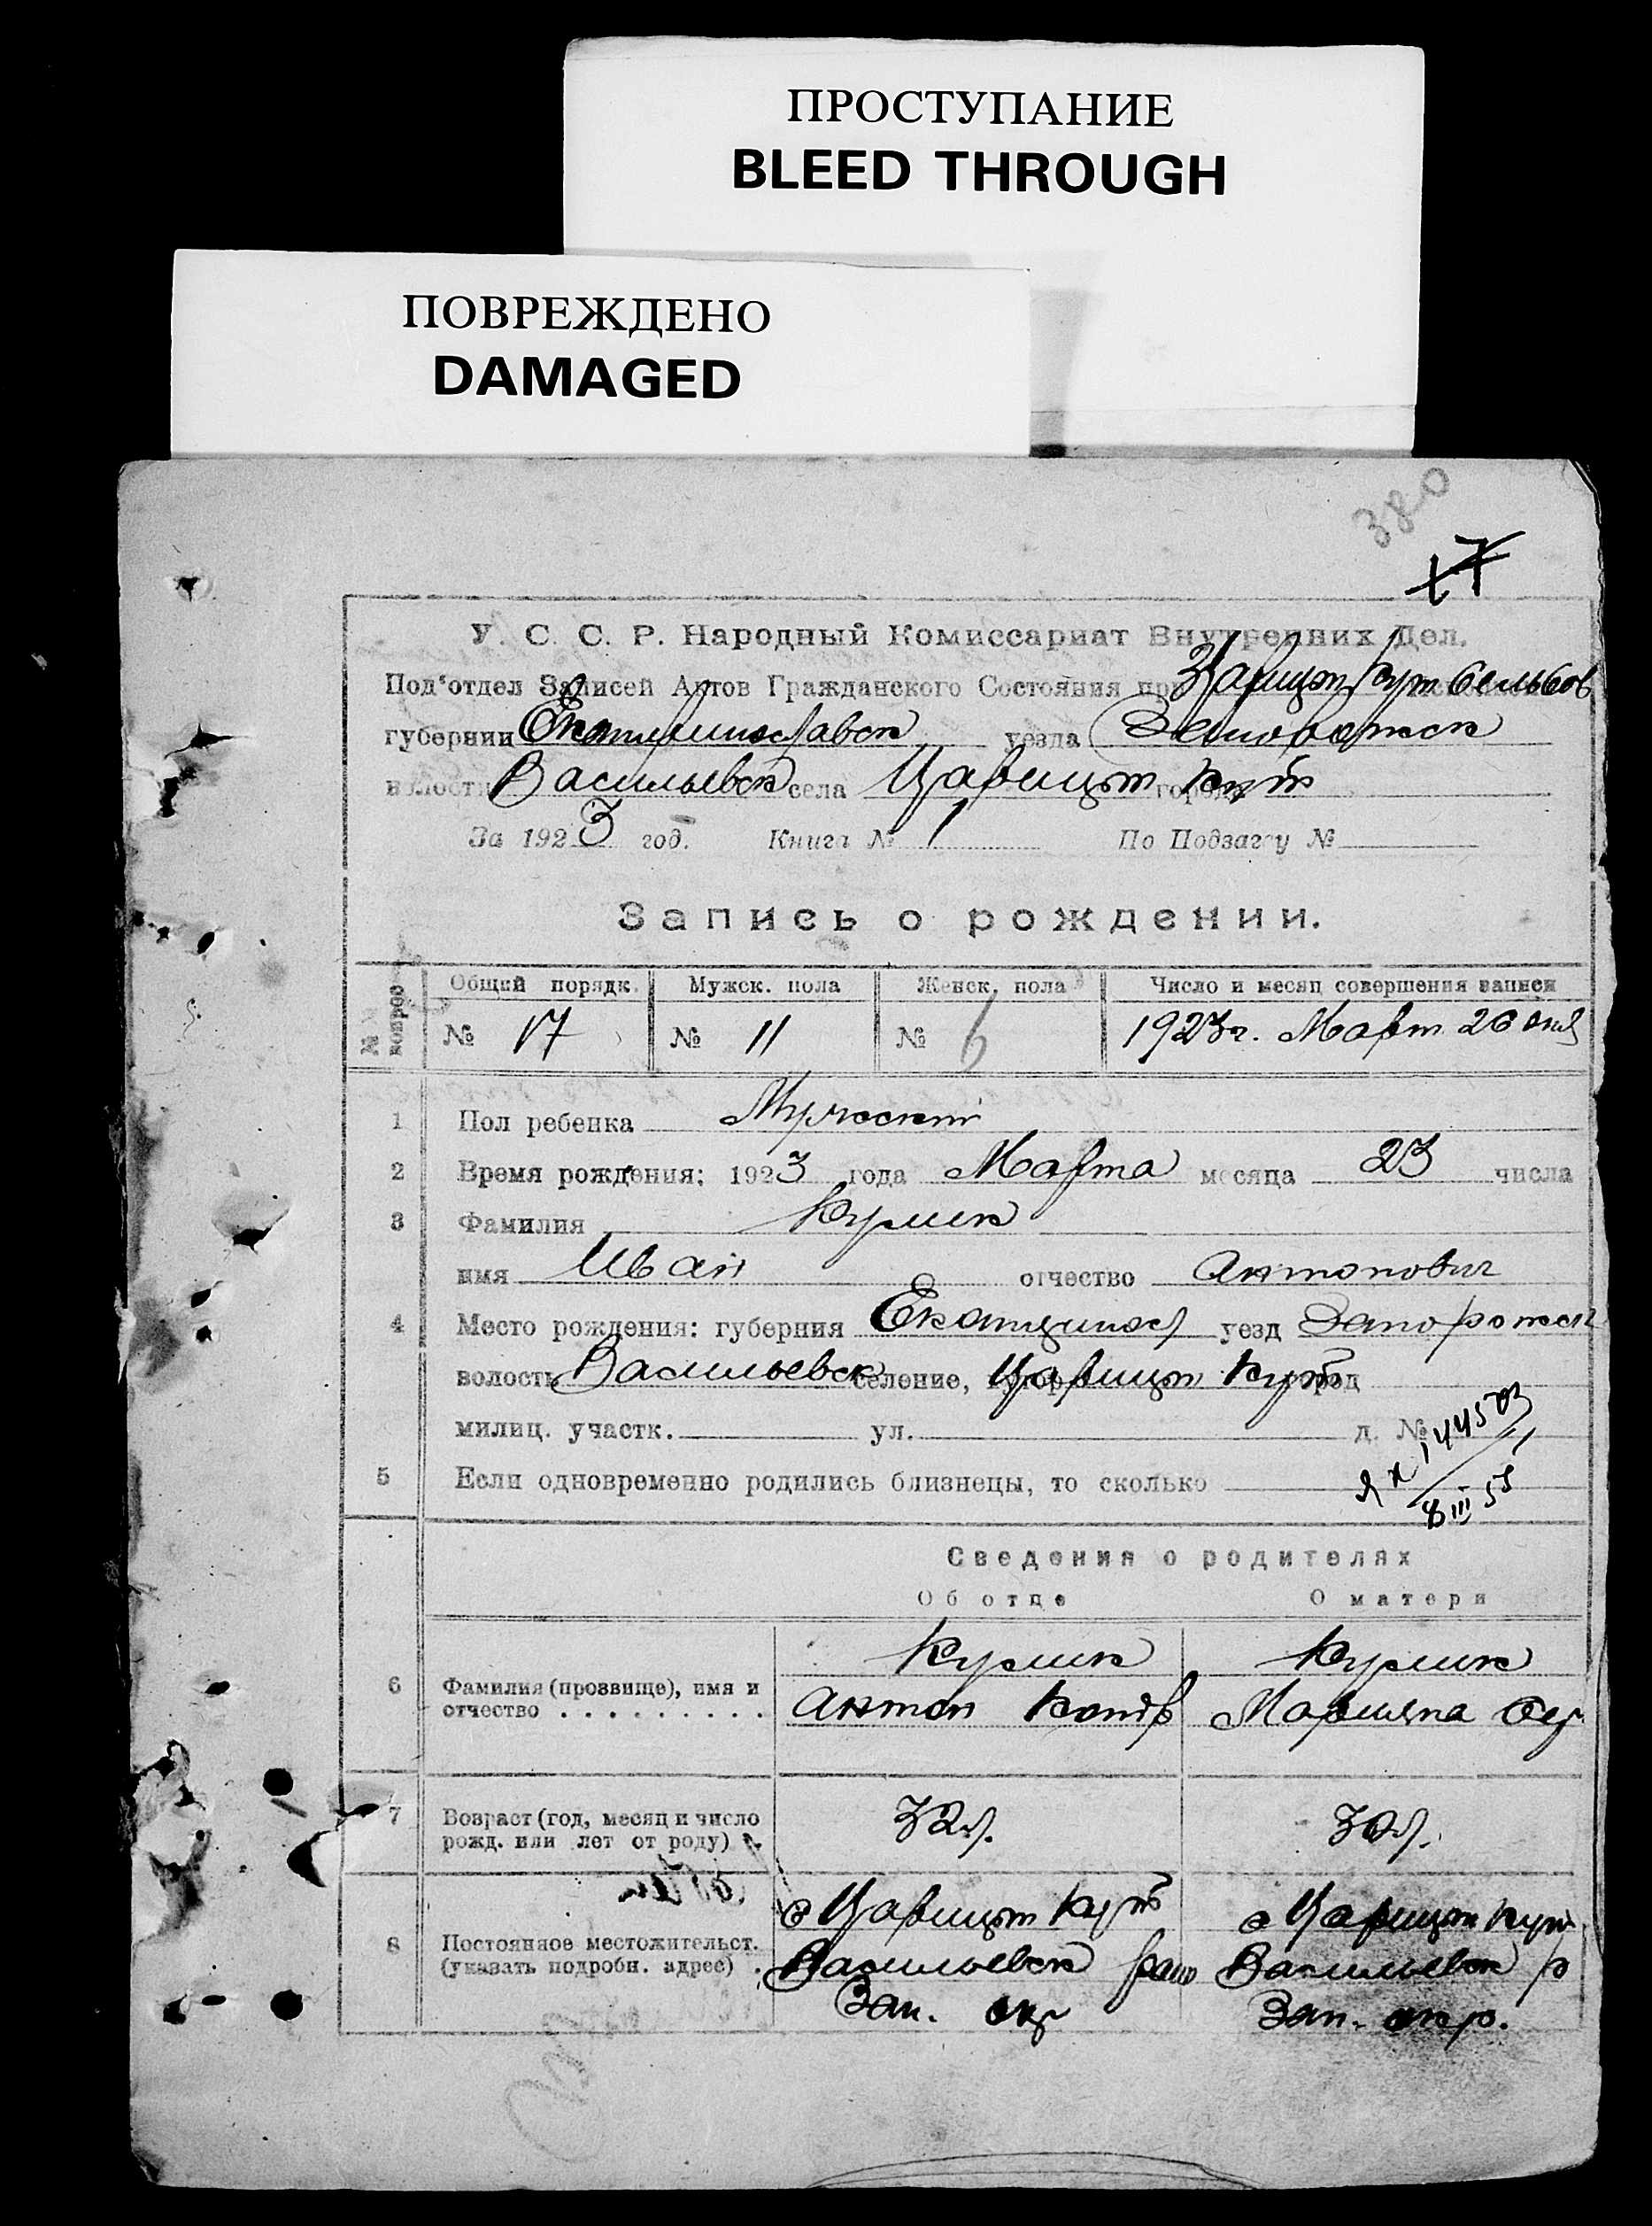 ПРОСТУПАНИЕ
BLEED THROUGH
ПОВРЕЖДЕНО
DAMAGED
380
17
У. С. С. Р. Народный Комиссариат Внутренних Дел.
Под'отдел Записей Актов Гражданского Состояния при Царицын Кут
губернии Екатеринославск уезда Запорожск
волости Васильевск села Царицын Кут
За 1923 год. Книга № 1 По Подзагсу №
Запись о рождении.
№№ вопрос
Общий порядк. Мужск. пола Женск. пола Число и месяц совершения записи
№ 17 № 11 № 6 1923г. Март 26 дня
1 Пол ребенка Мужской
2 Время рождения: 1923 года Марта месяца 23 числа
3 Фамилия Кулик
имя Иван отчество Антонович
4 Место рождения: губерния Екатеринос уезд Запорожск
волость Васильевск селение, хутор Царицын Кут город
милиц. участк. ул. д. №
144503
8 III 55
5 Если одновременно родились близнецы, то сколько
Сведения о родителях
Об отце О матери
Кулик Кулик
6 Фамилия (прозвище), имя и
отчество . . . . . . . . . Антон Кондр Марияна
7 Возраст (год, месяц и число
рожд. или лет от роду) 32 л. 30 л.
с Царицын Кут с Царицын Кут
8 Постоянное местожительст.
(указать подробн. адрес) . Васильевск райо Васильевск р
Зап. окр Зап. окр.